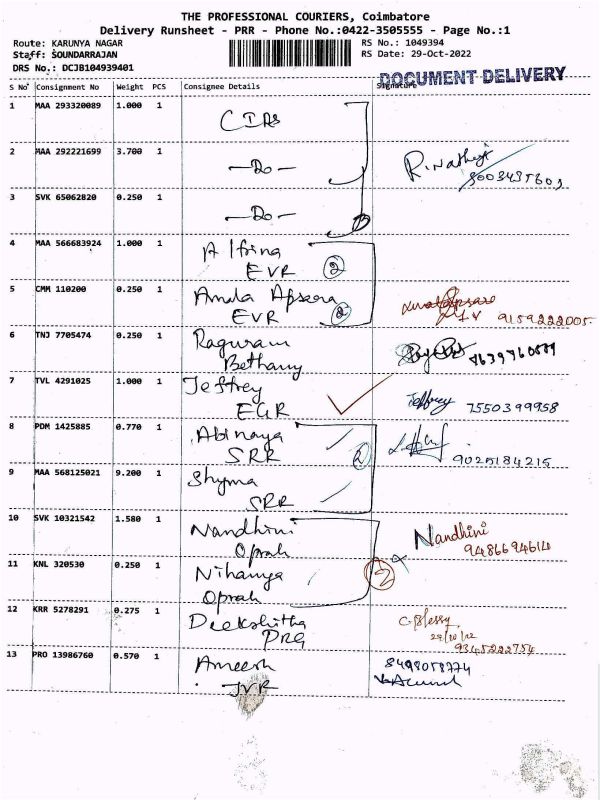 THE PROFESSIONAL COURIERS, Coimbatore
Delivery Runsheet - PRR - Phone No.:0422-3505555 - Page No.:1
Route: KARUNYA NAGAR
RS No.: 1049394
Staff: SOUNDARRAJAN
RS Date: 29-Oct-2022
DRS No.: DCJB104939401
DOCUMENT DELIVERY
S No Consignment No Weight PCS Consignee Details Signature
1 MAA 293320089 1.000 1
2 MAA 292221699 3.700 1 -Do-
3 SVK 65062820 0.250 1 -Do-
4 MAA 566683924 1.000 1 Alfrina
EVR 2
5 CMM 110200 0.250 1 Amala Apsara
EVR 2 9159222005
6 TNJ 7705474 0.250 1 Raguram
Bethany
7 TVL 4291025 1.000 1 Jeffrey Jeffrey 7550399958
EGR
8 PDM 1425885 0.770 1 Abinaya
SRR 2 9025184215
9 MAA 568125021 9.200 1 Shyma
SRR
10 SVK 10321542 1.580 1 Nandhini Nandhini
Oprah 9486694614
11 KNL 320530 0.250 1 Nihanya 2
Oprah
12 KRR 5278291 0.275 1 Deekshitha
PRG 9345222754
13 PRO 13986760 0.570 1 Ameesh 8498058774
JVR